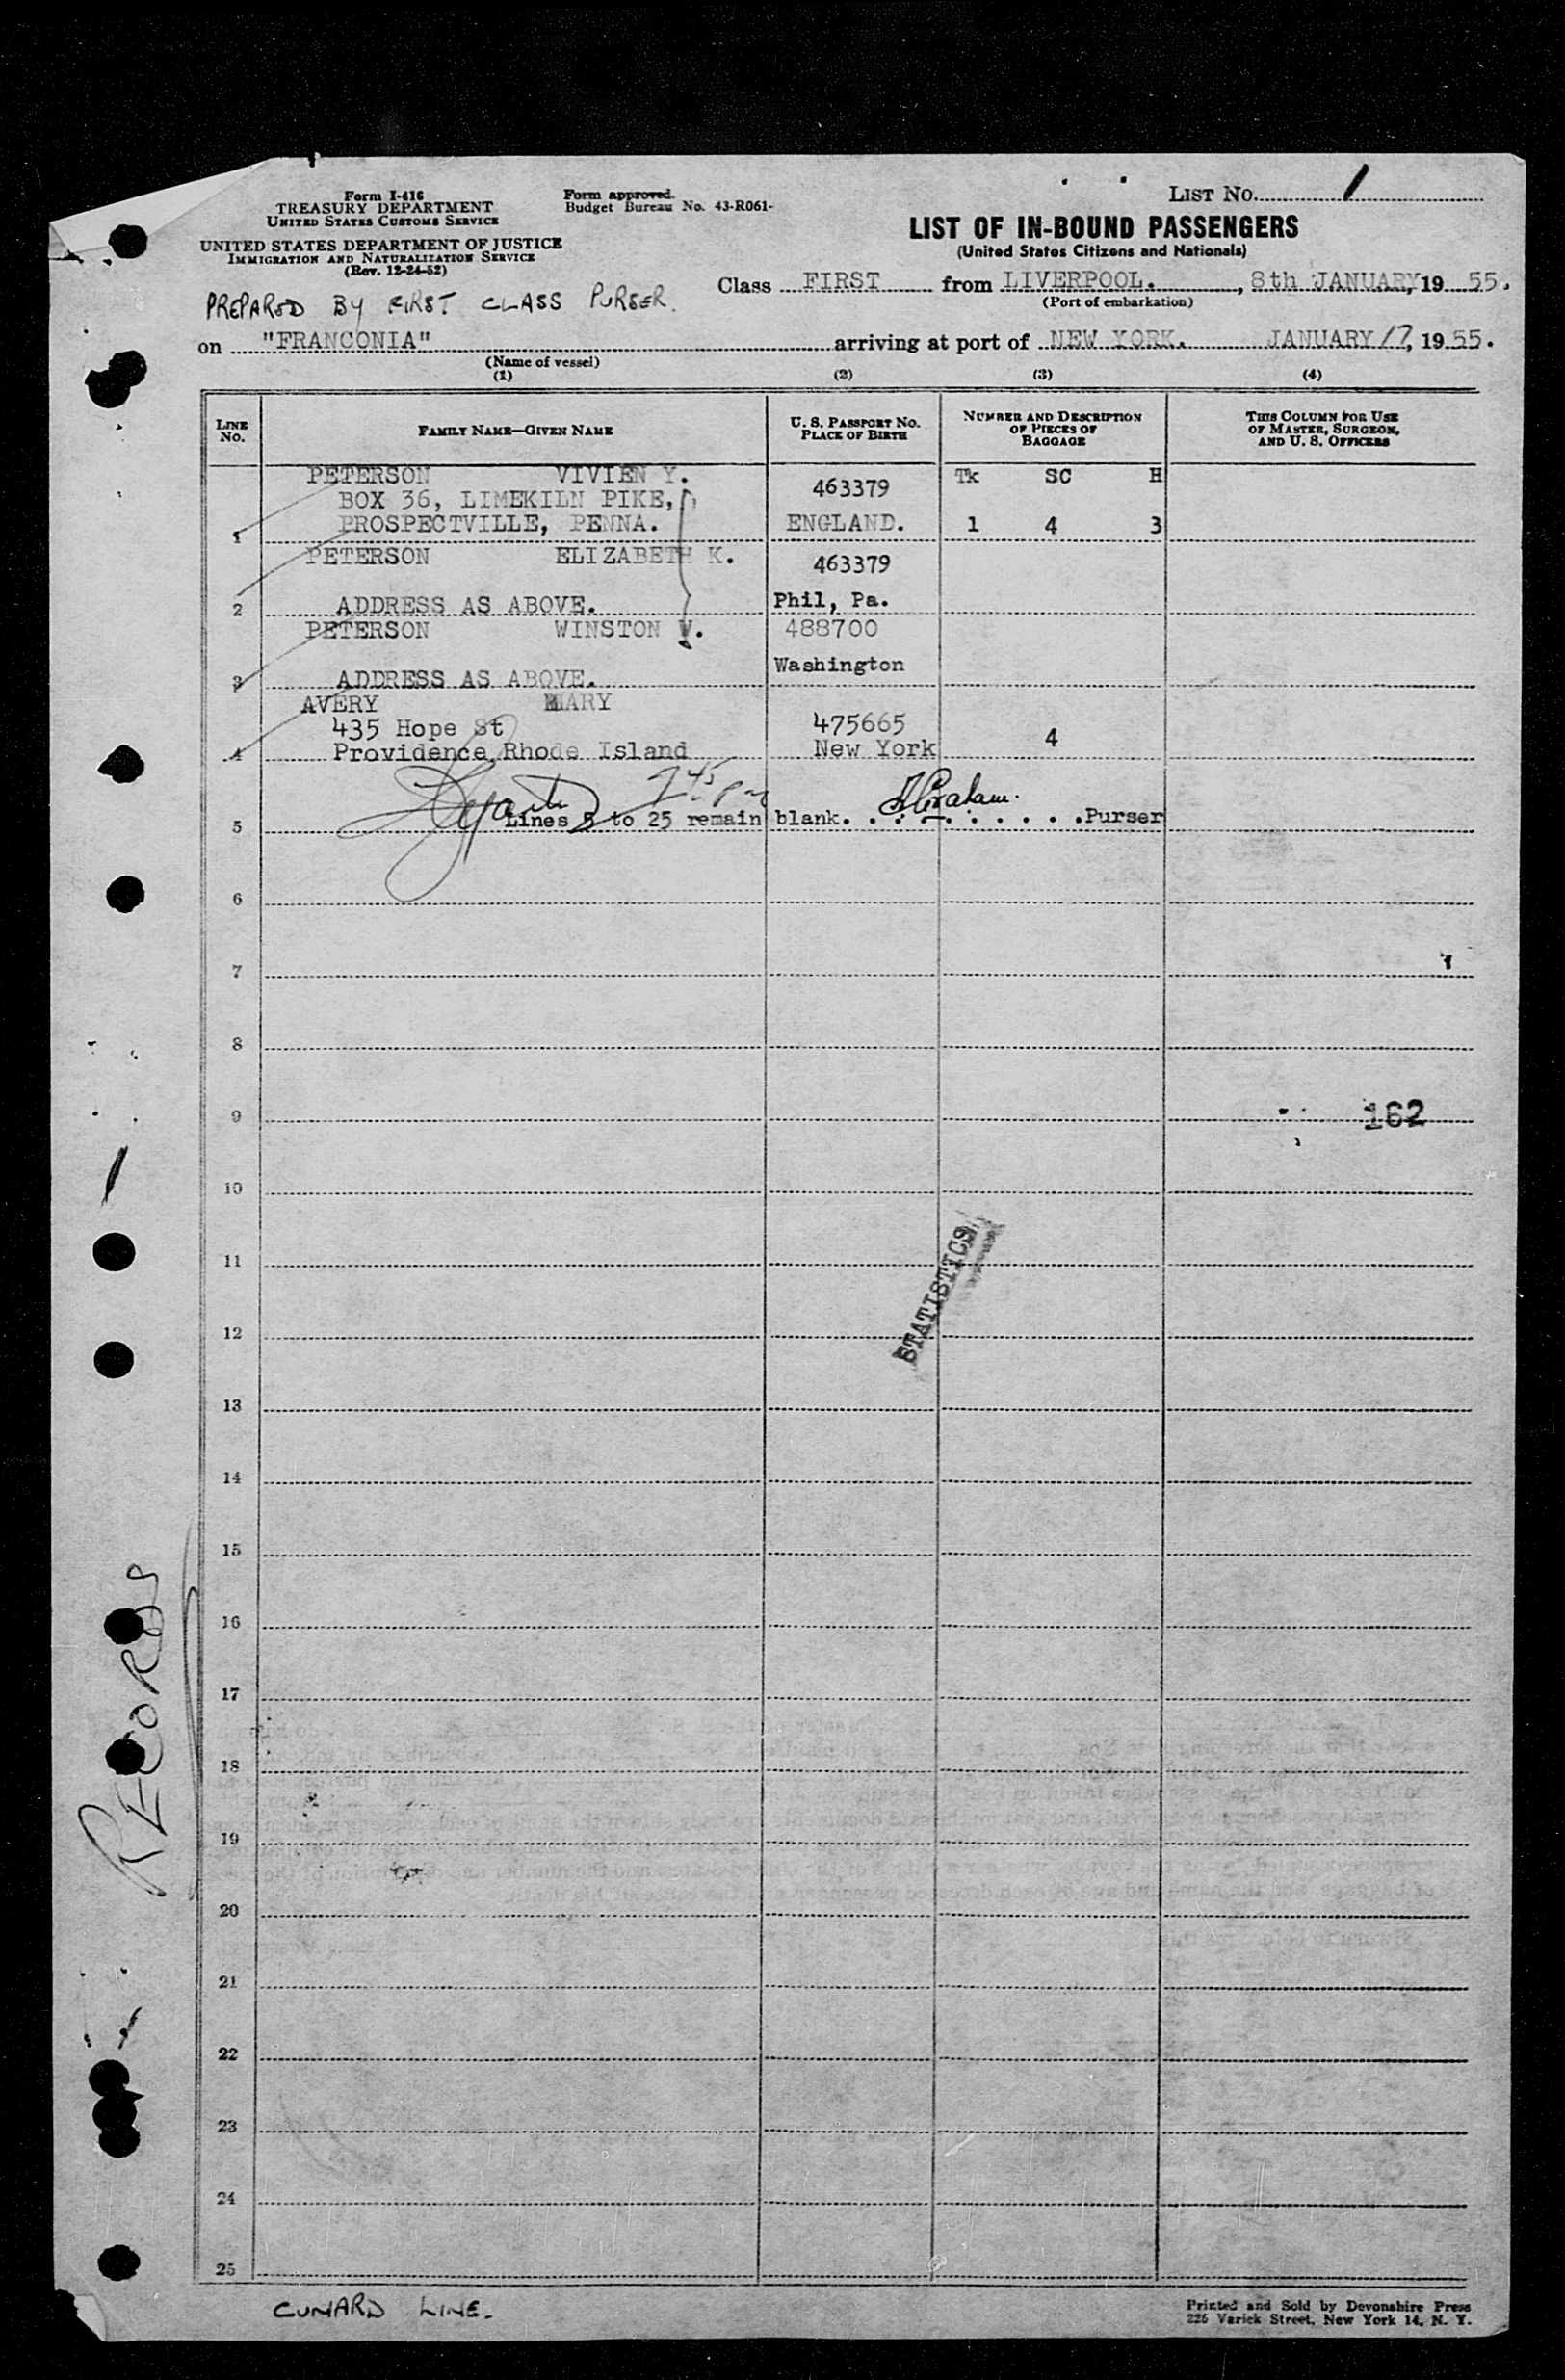 Form I-416
TREASURY DEPARTMENT
UNITED STATES CUSTOMS SERVICE
UNITED STATES DEPARTMENT OF JUSTICE
IMMIGRATION AND NATURALIZATION SERVICE
(Rev. 12-24-52)
Form approved.
Budget Bureau No. 43-R061-
LIST NO. 1
LIST OF IN-BOUND PASSENGERS
(United States Citizens and Nationals)
PREPARED BY FIRST CLASS PURSER.
Class FIRST from LIVERPOOL. , 8th JANUARY, 19 55.
(Port of embarkation)
on "FRANCONIA" arriving at port of NEW YORK. JANUARY 17, 19 55.
(Name of vessel)
(1) (2) (3) (4)
LINE NO.
FAMILY NAME—GIVEN NAME
U. S. PASSPORT NO.
PLACE OF BIRTH
NUMBER AND DESCRIPTION
OF PIECES OF
BAGGAGE
THIS COLUMN FOR USE
OF MASTER, SURGEON,
AND U. S. OFFICERS
PETERSON VIVIEN Y. Tk SC H
BOX 36, LIMEKILN PIKE, 463379
1 PROSPECTVILLE, PENNA. ENGLAND. 1 4 3
PETERSON ELIZABETH K. 463379
2 ADDRESS AS ABOVE. Phil, Pa.
PETERSON WINSTON V. 488700
Washington
3 ADDRESS AS ABOVE.
AVERY MARY
435 Hope St 475665
4 Providence, Rhode Island New York 4
7 45 pm
5 Lines 5 to 25 remain blank. A Graham. Purser
6
7
8
9 162
10
11
STATISTICS
12
13
14
15
16
17
18
19
20
21
22
23
24
25
RECORDS
CUNARD LINE.
Printed and Sold by Devonshire Press
225 Varick Street, New York 14, N. Y.